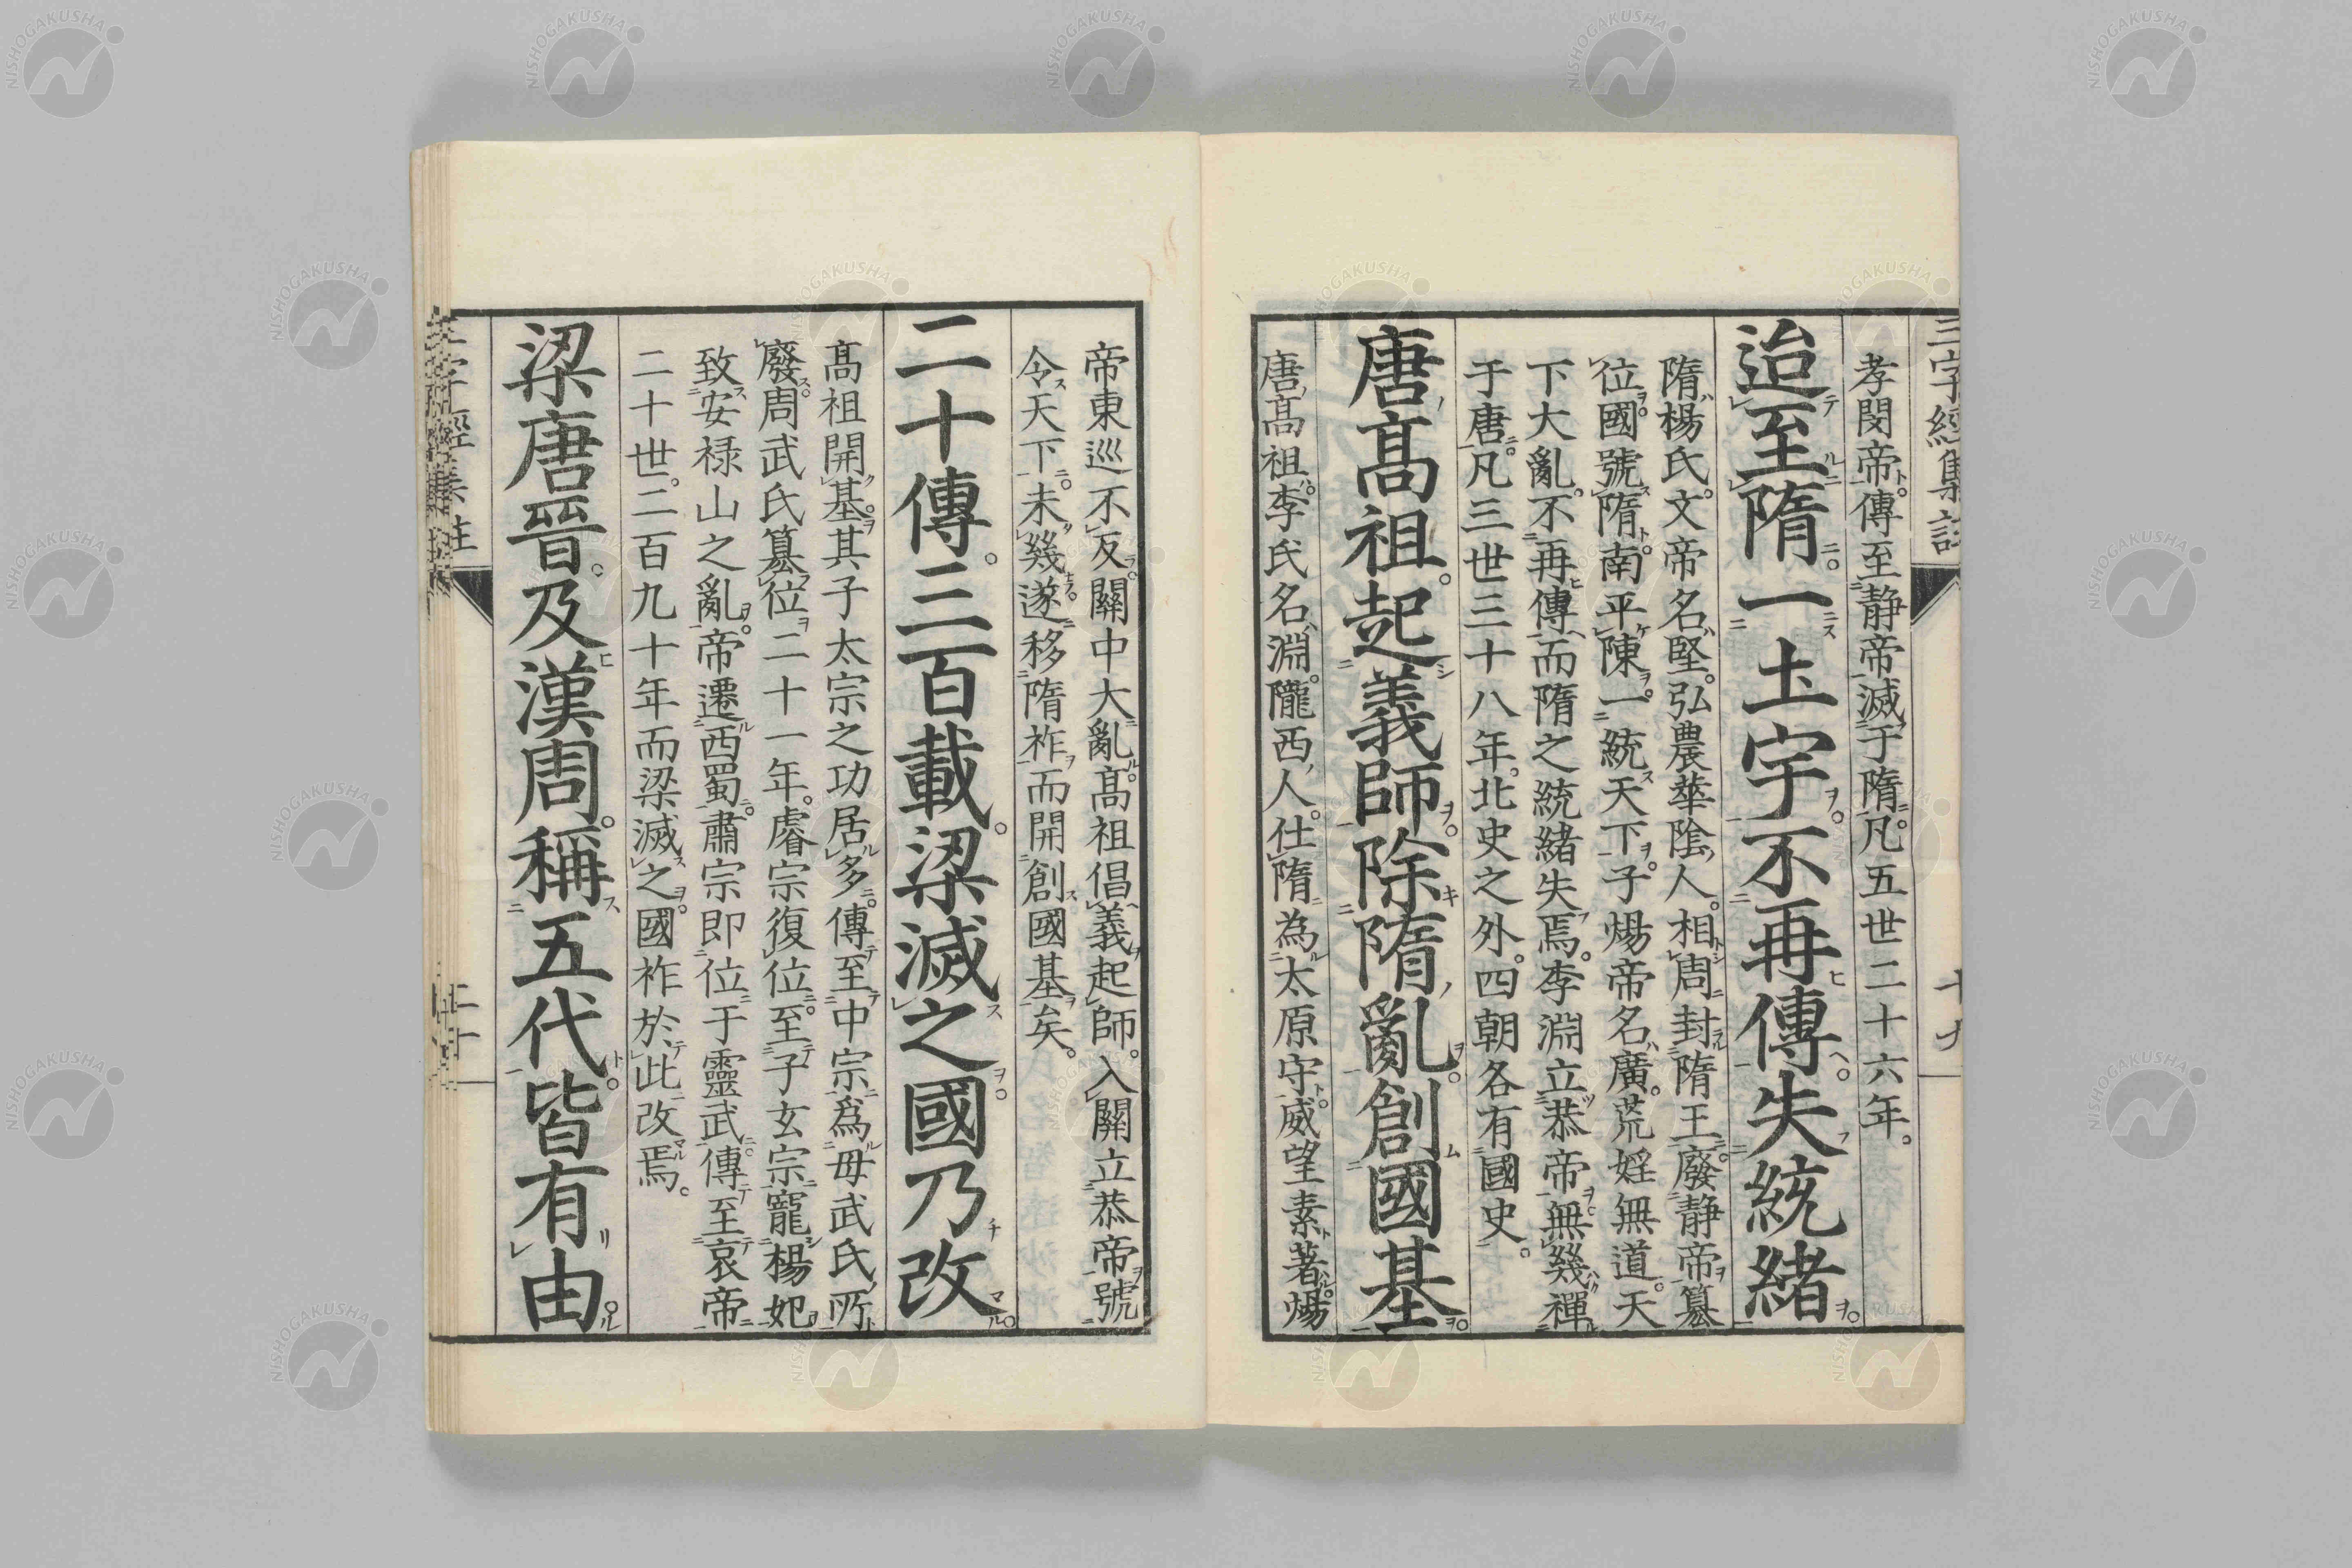 三字經集註
十九
孝閔帝傳至静帝滅于隋凡五世二十六年。
迨至隋一土宇不再傳失統緒
隋楊氏。文帝名堅。弘農華陰人。相周封隋王廢静帝篡
位國號隋南平陳一統天下子煬帝名廣。荒婬無道。天
下大亂。不再傳而隋之統緒失焉。李淵立恭帝無幾禪
于唐。凡三世三十八年。北史之外。四朝各有國史。
唐髙祖。起義師除隋亂創國基
唐髙祖。李氏名淵。隴西人。仕隋為太原守威望素著煬
帝東巡不反關中大亂。髙祖倡義起師。入關立恭帝號
令天下。未幾遂移隋祚而開創國基矣。
二十傳。三百載。梁滅之國乃改
髙祖開基。其子太宗之功居多。傳至中宗爲母武氏所
廢周武氏篡位二十一年。睿宗復位。至子玄宗寵楊妃
致安禄山之亂。帝遷西蜀。肅宗即位于靈武傳至哀帝
二十世。二百九十年而梁滅之。國祚於此改焉。
梁唐晋。及漢周。稱五代皆有由
三字經集註
二十
NISHOGAKUSHA